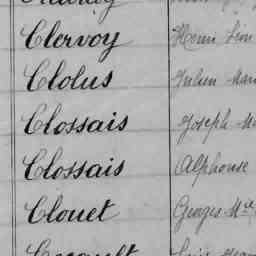 Clervoy Henri Léon
Clolus Julien Mari
Clossais Joseph M
Clossais Alphonse
Clouet Georges Mce